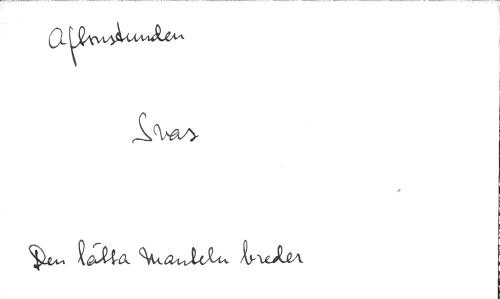 Aftonstunden
Svas
Den lätta manteln breder